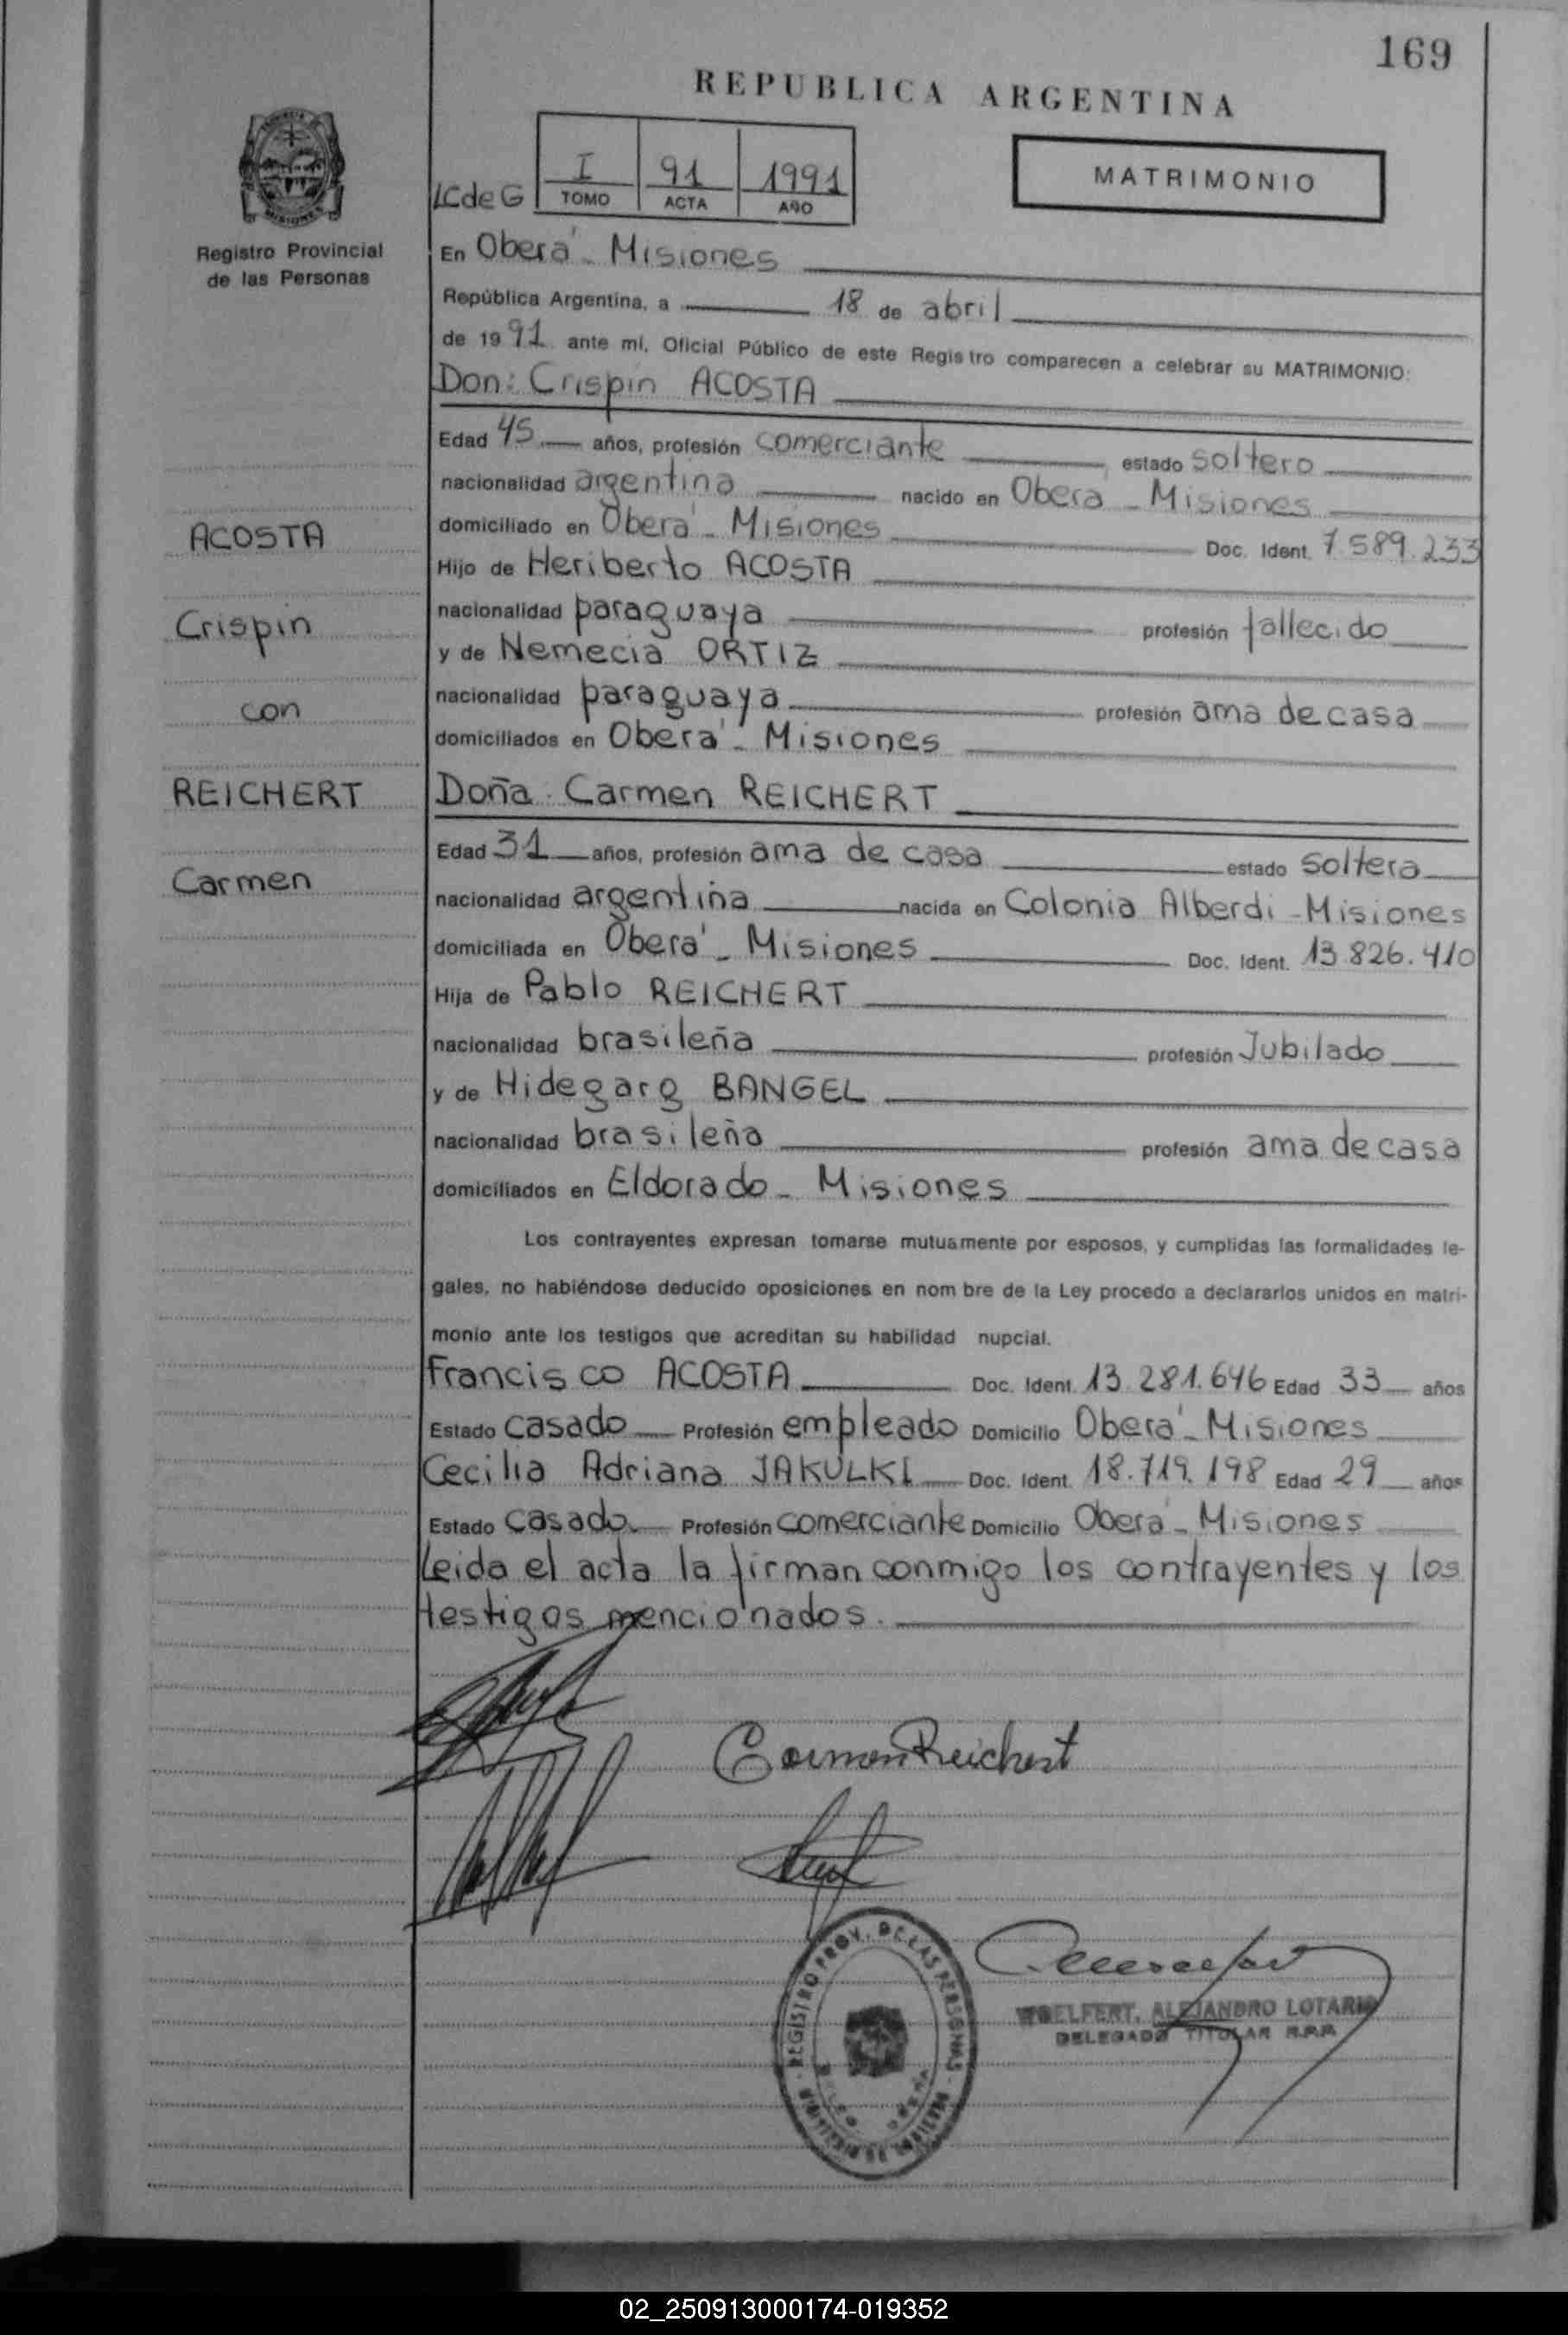 169
REPUBLICA ARGENTINA
MATRIMONIO
LC de G
I 91 1991
TOMO ACTA AÑO
Registro Provincial
de las Personas
En Oberá - Misiones
República Argentina, a 18 de abril
de 1991 ante mí, Oficial Público de este Registro comparecen a celebrar su MATRIMONIO:
Don: Crispin ACOSTA
Edad 45 años, profesión comerciante estado soltero
nacionalidad argentina nacido en Oberá - Misiones
ACOSTA
domiciliado en Oberá - Misiones Doc. Ident. 7.589.233
Hijo de Heriberto ACOSTA
Crispin
nacionalidad paraguaya profesión fallecido
y de Nemecia ORTIZ
con
nacionalidad paraguaya profesión ama de casa
domiciliados en Oberá - Misiones
REICHERT
Doña: Carmen REICHERT
Edad 31 años, profesión ama de casa estado soltera
Carmen
nacionalidad argentina nacida en Colonia Alberdi - Misiones
domiciliada en Oberá - Misiones Doc. Ident. 13.826.410
Hija de Pablo REICHERT
nacionalidad brasileña profesión Jubilado
y de Hidegarg BANGEL
nacionalidad brasileña profesión ama de casa
domiciliados en Eldorado - Misiones
Los contrayentes expresan tomarse mutuamente por esposos, y cumplidas las formalidades le-
gales, no habiéndose deducido oposiciones en nombre de la Ley procedo a declararlos unidos en matri-
monio ante los testigos que acreditan su habilidad nupcial.
Francisco ACOSTA Doc. Ident. 13.281.646 Edad 33 años
Estado casado Profesión empleado Domicilio Oberá - Misiones
Cecilia Adriana JAKULKI Doc. Ident. 18.719.198 Edad 29 años
Estado casado Profesión comerciante Domicilio Oberá - Misiones
Leida el acta la firman conmigo los contrayentes y los
testigos mencionados.
Carmen Reichert
REGISTRO PROV. DE LAS PERSONAS
WOELFERT, ALEJANDRO LOTARIO
DELEGADO TITULAR R.P.P.
02_250913000174-019352